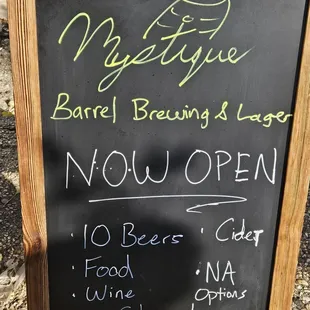 Mystique
Barrel Brewing & Lager
NOW OPEN
· 10 Beers
· Food
· Wine
· Cider
· NA
Options